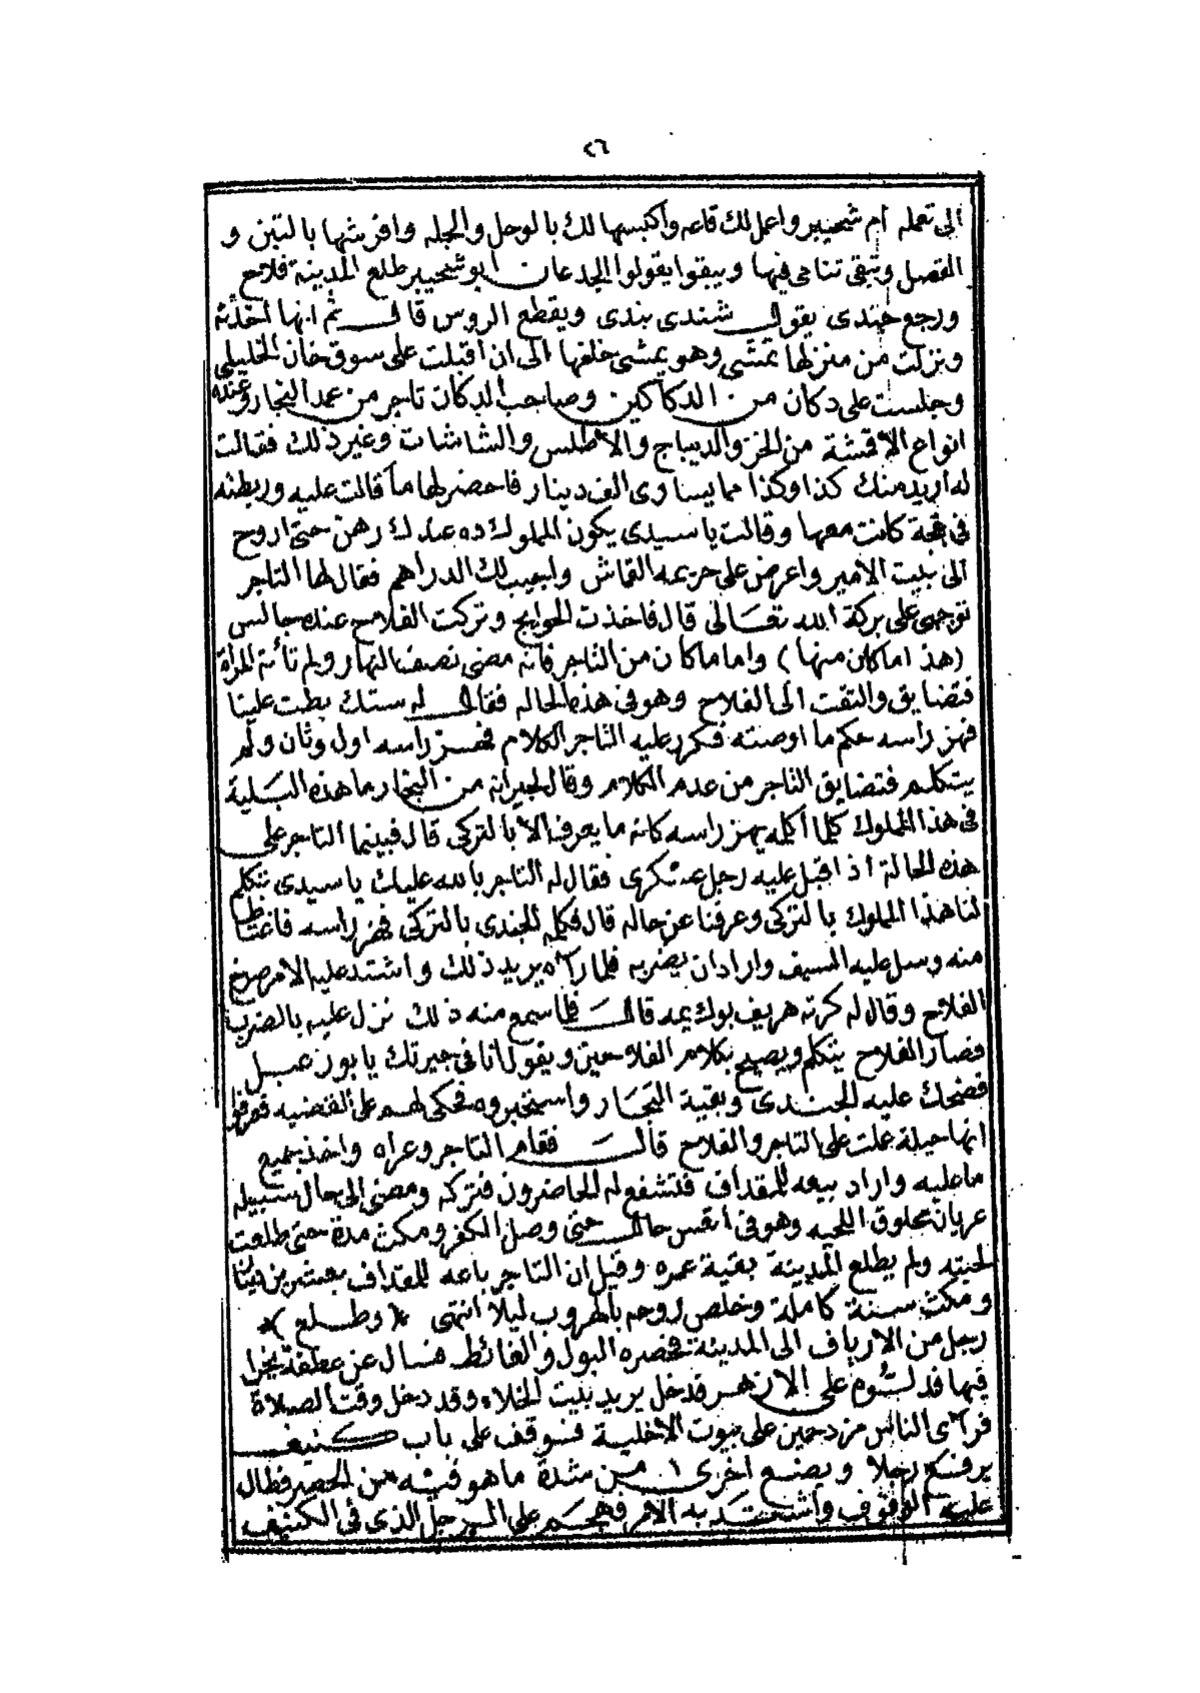 ٢٦
الى تعمله ام شحيبر واعمل لك قاعه واكبسها لك بالوحل والجله وافرشها بالتبن و
القصل وتبقى تناحى فيها ويبقوا يقولوا الجدعان ابو شحيبر طلع المدينة فلاح
ورجع جندى يقول شندى بندى ويقطع الروس قال ثم انها اخذته
ونزلت من منزلها تمشى وهو يمشى خلفها الى ان اقبلت على سوق خان الخليلى
وجلست على دكان من الدكاكين وصاحب الدكان تاجر من عمد التجار وعنده
انواع الاقمشة من الخز والديباج والاطلس والشاشات وغير ذلك فقالت
له اريد منك كذا وكذا مما يساوى الف دينار فاحضر لها ما قالت عليه وربطته
فى بقجة كانت معها وقالت يا سيدى يكون المملوك ده عندك رهن حتى اروح
الى بيت الامير واعرض على حريمه القماش واجيب لك الدراهم فقال لها التاجر
توجهى على بركة الله تعالى قال فاخذت الحوايج وتركت الفلاح عنده جالس
(هذا ما كان منها) واما ما كان من التاجر فانه مضى نصف النهار ولم تأته المرأة
فتضايق والتفت الى الفلاح وهو فى هذه الحاله فقال له ستك بطت علينا
فهز راسه حكم ما اوصته فكرر عليه التاجر الكلام فهز راسه اول وثان ولم
يتكلم فتضايق التاجر من عدم الكلام وقال لجيرانه من التجار ما هذه البلية
فى هذا المملوك كلما اكلمه يهز راسه كانه ما يعرف الا بالتركى قال فبينما التاجر على
هذه الحالة اذ اقبل عليه رجل عسكرى فقال له التاجر بالله عليك يا سيدى تتكلم
لنا هذا المملوك بالتركى وعرفنا عن حاله قال فكلمه الجندى بالتركى فهز راسه فاغتاظ
منه وسل عليه السيف واراد ان يضربه فلما رآه يريد ذلك واشتد عليه الامر صرخ
الفلاح وقال له كرته هريف بوك يمه قال فلما سمع منه ذلك نزل عليه بالضرب
فصار الفلاح يتكلم ويصيح بكلام الفلاحين ويقول انا فى جيرتك يا بوزعبل
فضحك عليه الجندى وبقية التجار واستخبروه فحكى لهم على القضيه فعرفوا
انها حيلة عملت على التاجر والفلاح قال فقام التاجر وعراه واخذ جميع
ما عليه واراد بيعه للمقداف فتشفع له الحاضرون فتركه ومضى الى حال سبيله
عريان محلوق اللحيه وهو فى انقس حال حتى وصل الكفر ومكث مدة حتى طلعت
لحيته ولم يطلع المدينة بقية عمره وقيل ان التاجر باعه للمقداف بعشرين دينار
ومكث سنة كاملة وخلص روحه بالهروب ليلا انتهى *(وطلع)*
رجل من الارياف الى المدينة فحصره البول والغائط فسال عن عطفة يخرا
فيها فدلوه على الازهر فدخل يريد بيت الخلاء وقد دخل وقت الصلاة
فرآى الناس مزدحمين على بيوت الاخلية فوقف على باب كنيف
يرفع رجلا ويضع اخرى من شدة ما هو فيه من الحصر فطال
عليه الوقوف واشتد به الامر فهجم على الرجل الذى فى الكنيف